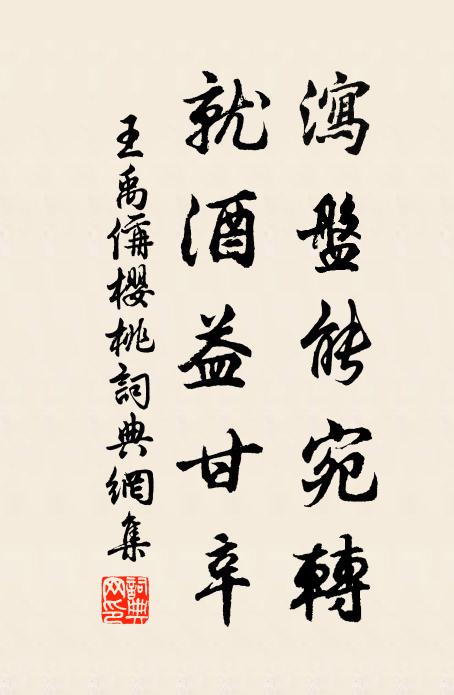 瀉盤能宛轉
就酒益甘辛
王禹偁櫻桃詞典網集
詞典網印